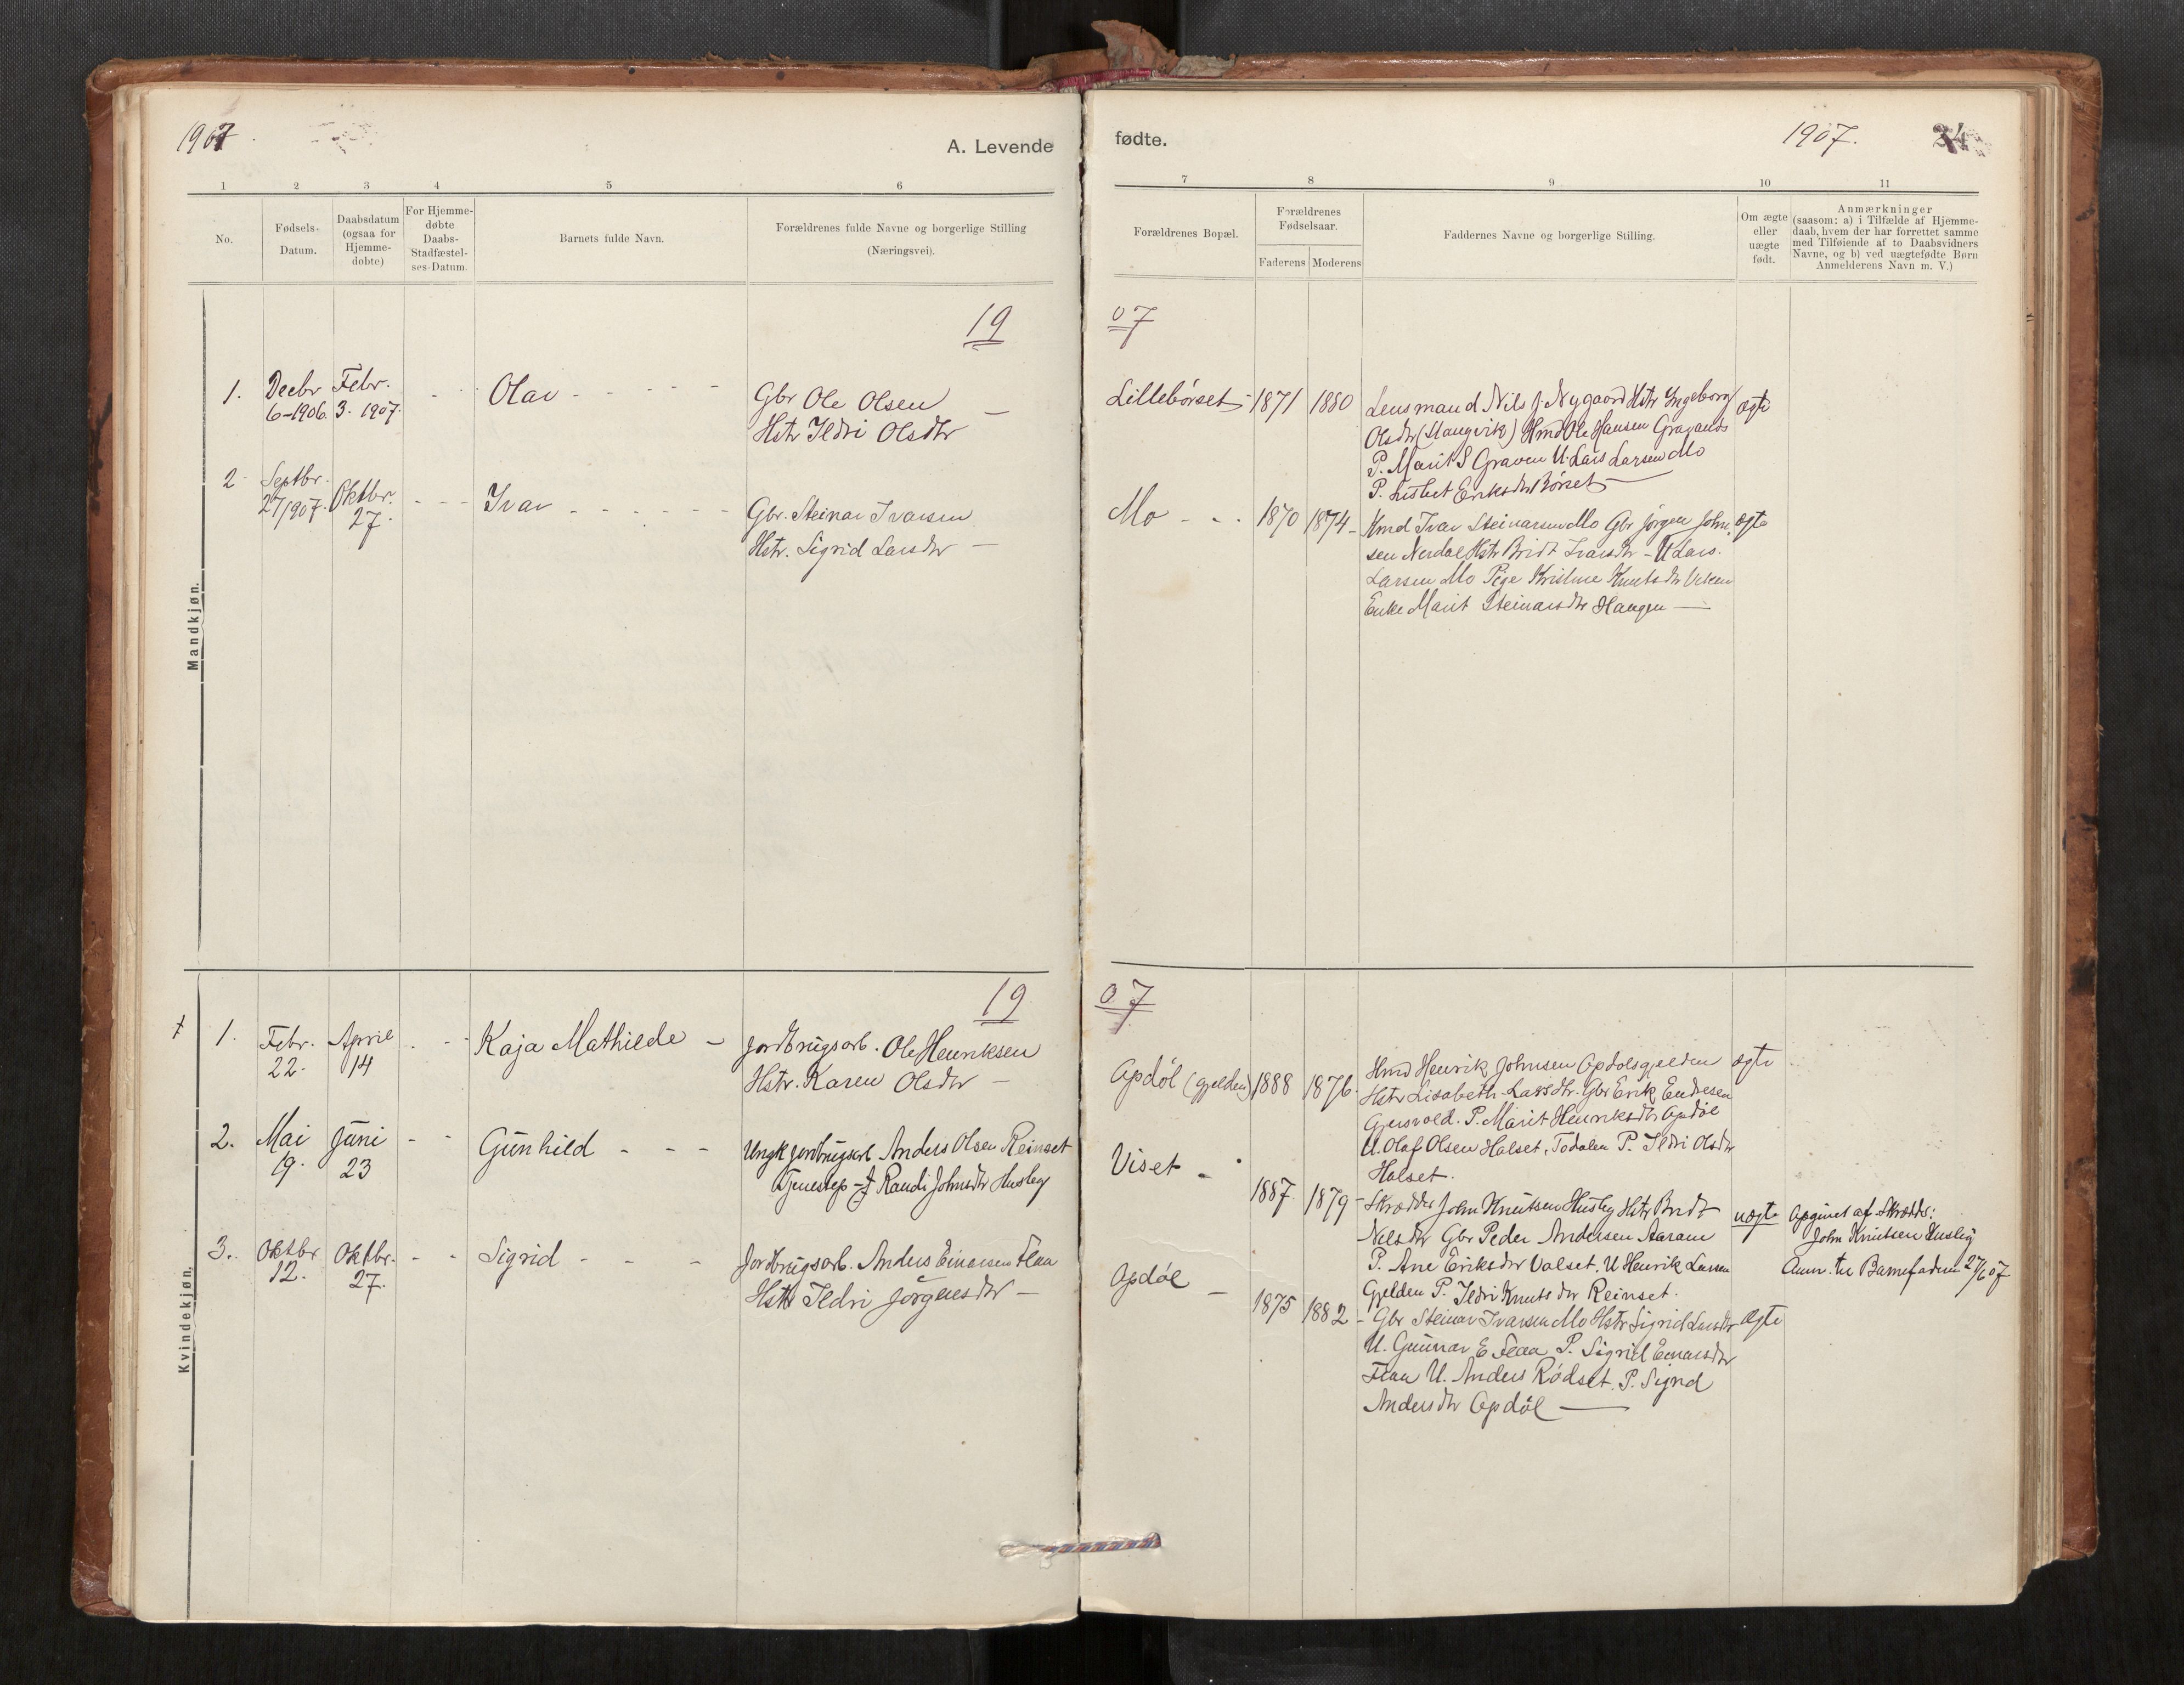 1907.
A. Levende
1
2
3
4
5
6
No.
Fødsels-
Datum.
Daabsdatum
(ogsaa for
Hjemme-
døbte)
For Hjemme-
døbte
Daabs-
Stadfæstel-
ses-Datum.
Barnets fulde Navn.
Forældrenes fulde Navne og borgerlige Stilling
(Næringsvei).
19
Mandkjøn.
1.
Decbr
6-1906.
Febr.
3. 1907.
Olav
Gbr Ole Olsen
Hstr Ildri Olsdtr
2
Septbr.
27/1907.
Oktbr.
27.
Ivar
Gbr. Steinar Ivarsen
Hstr. Sigrid Larsdtr
19
Kvindekjøn.
1.
Febr.
22.
April
14
Kaja Mathilde
Jordbrugsarb. Ole Henriksen
Hstr. Karen Olsdtr
2.
Mai
19.
Juni
23
Gunhild
Ungk jordbrugsarb Anders Olsen Reinset
Randi Johnsdtr Husby
3.
Oktbr
12.
Oktbr.
27.
Sigrid
Jordbrugsarb. Anders Einarsen Flaa
Hstr Ildri Jørgensdtr
fødte.
1907.
34
7
8
9
10
11
Forældrenes Bopæl.
Forældrenes
Fødselsaar.
Faderens
Moderens
Faddernes Navne og borgerlige Stilling.
Om ægte
eller
uægte
født.
Anmærkninger
(saasom: a) i Tilfælde af Hjemme-
daab, hvem der har forrettet samme
med Tilføiende af to Daabsvidners
Navne, og b) ved uægtefødte Børn
Anmelderens Navn m. V.)
07
Lillebørset
1871
1880
Lensmand Nils J. Nygaard Hstr Ingeborg
Olsdtr (Stangvik) Hmd Ole Hansen
P. Marit S Graven U. Lars Larsen Mo
P. Lisbet Eriksdtr Børset
ægte
Mo
1870
1874
Kmd Ivar Steinarsen Mo Gbr Jørgen John-
sen Nerdal Hstr Bridt Ivarsdtr - U Lars
Larsen Mo Pige Kristine Knutsdtr
Enke Marit Steinarsdtr Haugen
ægte
07
Opdøl (gjelden)
1888
1876
Hmd Henrik Johnsen Opdølsgjelden
Hstr Lisabeth Larsdtr. Gbr Erik Endresen
Gjersvold. P. Marit Henriksdtr Opdøl
U. Olaf Olsen Halset, Todalen P. Ildri Olsdtr
Halset.
ægte
Viset
1887.
1879
Skrædder John Knutsen Husby Hstr Bridt
Nilsdtr Gbr Peder Andersen Aaram
P. Ane Eriksdtr Valset. U Henrik Larsen
Gjelden P. Ildri Knutsdtr Reinset.
uægte
Opgivet af Skrædder:
John Knutsen Husby
Anm. til Barnefaderen 27/6 07
Opdøl
1875
1882
Gbr Steinar Ivarsen Mo Hstr Sigrid Larsdtr
U. Gunnar E Flaa P. Sigrid Einarsdtr
Flaa U. Anders Rødset. P. Sigrid
Andersdtr Opdøl
Ægte